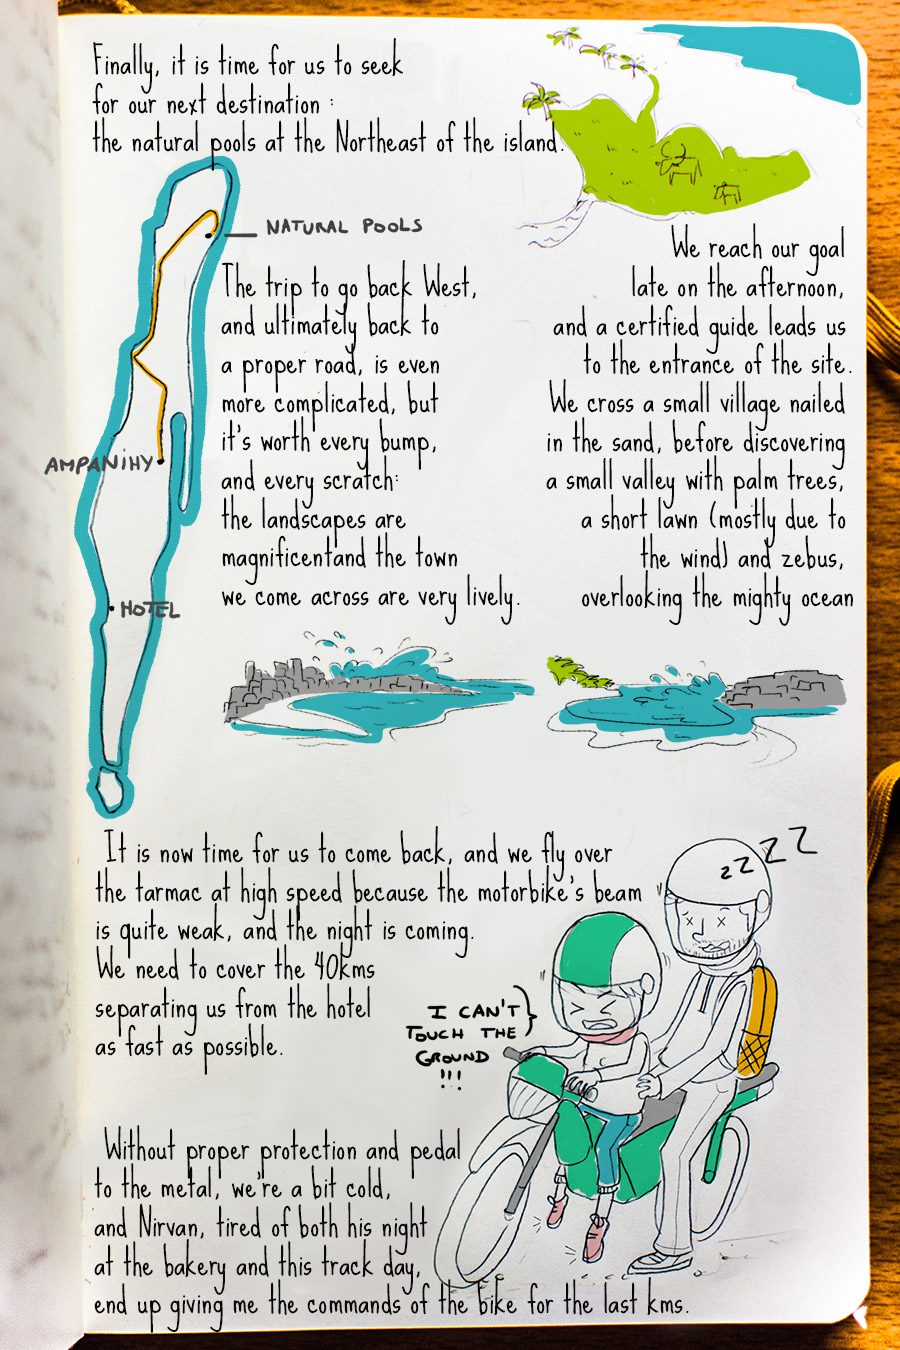 Finally, it is time for us to seek
for our next destination :
the natural pools at the Northeast of the island.
NATURAL POOLS
AMPANIHY
HOTEL
The trip to go back West,
and ultimately back to
a proper road, is even
more complicated, but
it's worth every bump,
and every scratch:
the landscapes are
magnificentand the town
we come across are very lively.
We reach our goal
late on the afternoon,
and a certified guide leads us
to the entrance of the site.
We cross a small village nailed
in the sand, before discovering
a small valley with palm trees,
a short lawn (mostly due to
the wind) and zebus,
overlooking the mighty ocean
It is now time for us to come back, and we fly over
the tarmac at high speed because the motorbike's beam
is quite weak, and the night is coming.
We need to cover the 40kms
separating us from the hotel
as fast as possible.
zZZZ
I CAN'T
TOUCH THE
GROUND
!!!
Without proper protection and pedal
to the metal, we're a bit cold,
and Nirvan, tired of both his night
at the bakery and this track day,
end up giving me the commands of the bike for the last kms.